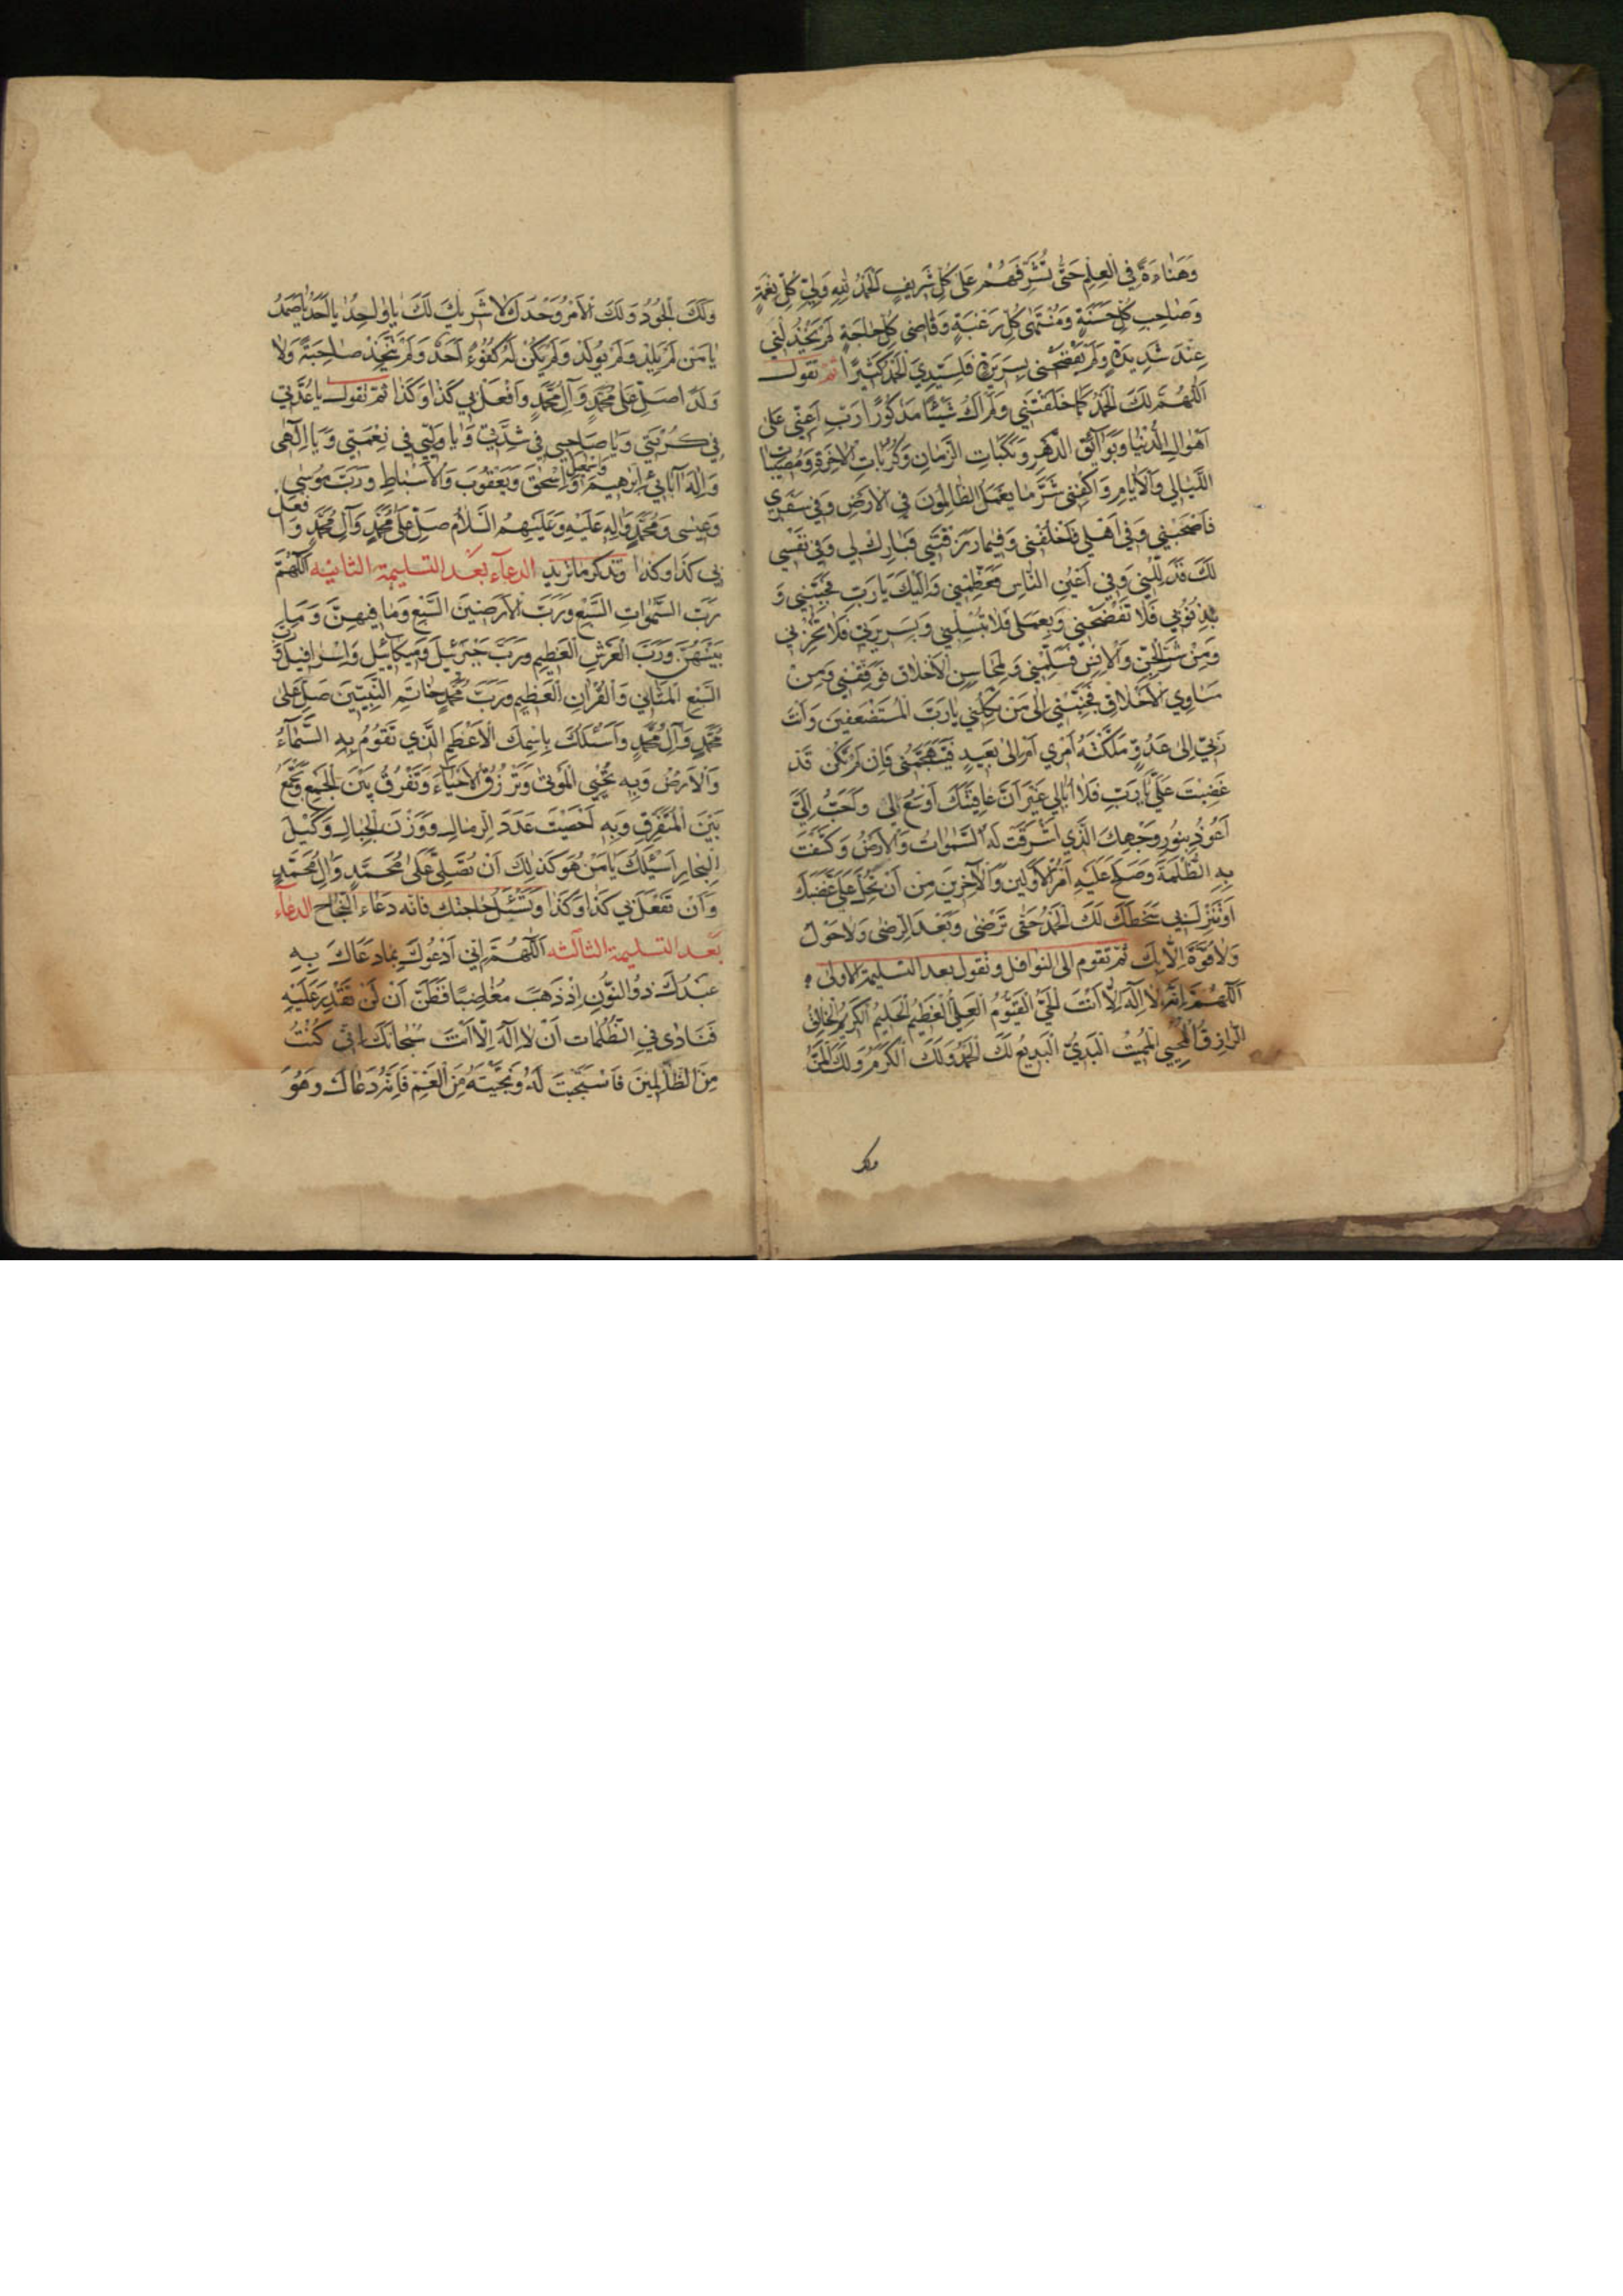 وَهَنَاءَةً فِي الْعِلْمِ حَتّٰى تُشَرِّفَهُمْ عَلٰى كُلِّ شَرِيفٍ اَلْحَمْدُ لِلّٰهِ وَلِيِّ كُلِّ نِعْمَةٍ
وَصَاحِبِ كُلِّ حَسَنَةٍ وَمُنْتَهٰى كُلِّ رَغْبَةٍ وَقَاضِي كُلِّ حَاجَةٍ لَمْ يَخْذُلْنِي
عِنْدَ شَدِيدَةٍ وَلَمْ يَفْضَحْنِي بِسَرِيرَةٍ فَلِسَيِّدِي الْحَمْدُ كَثِيرًا ثم تقول
اَللّٰهُمَّ لَكَ الْحَمْدُ كَمَا خَلَقْتَنِي وَلَمْ اَكُ شَيْئًا مَذْكُورًا رَبِّ اَعِنِّي عَلٰى
اَهْوَالِ الدُّنْيَا وَبَوَائِقِ الدَّهْرِ وَنَكَبَاتِ الزَّمَانِ وَكُرُبَاتِ الْاٰخِرَةِ وَمُصِيبَاتِ
اللَّيَالِي وَالْاَيَّامِ وَاكْفِنِي شَرَّ مَا يَعْمَلُ الظَّالِمُونَ فِي الْاَرْضِ وَفِي سَفَرِي
فَاصْحَبْنِي وَفِي اَهْلِي فَاخْلُفْنِي وَفِيمَا رَزَقْتَنِي فَبَارِكْ لِي وَفِي نَفْسِي
لَكَ فَذَلِّلْنِي وَفِي اَعْيُنِ النَّاسِ فَعَظِّمْنِي وَاِلَيْكَ يَا رَبِّ فَحَبِّبْنِي وَ
بِذُنُوبِي فَلَا تَفْضَحْنِي وَبِعَمَلِي فَلَا تُبْسِلْنِي وَبِسَرِيرَتِي فَلَا تُخْزِنِي
وَمِنْ شَرِّ الْجِنِّ وَالْاِنْسِ فَسَلِّمْنِي وَلِمَحَاسِنِ الْاَخْلَاقِ فَوَفِّقْنِي وَمِنْ
مَسَاوِي الْاَخْلَاقِ فَجَنِّبْنِي اِلٰى مَنْ تَكِلُنِي يَا رَبَّ الْمُسْتَضْعَفِينَ وَاَنْتَ
رَبِّي اِلٰى عَدُوٍّ مَلَّكْتَهُ اَمْرِي اَمْ اِلٰى بَعِيدٍ فَيَتَجَهَّمُنِي فَاِنْ لَمْ تَكُنْ قَدْ
غَضِبْتَ عَلَيَّ يَا رَبِّ فَلَا اُبَالِي غَيْرَ اَنَّ عَافِيَتَكَ اَوْسَعُ لِي وَاَحَبُّ اِلَيَّ
اَعُوذُ بِنُورِ وَجْهِكَ الَّذِي اَشْرَقَتْ لَهُ السَّمٰوَاتُ وَالْاَرْضُ وَكُشِفَتْ
بِهِ الظُّلْمَةُ وَصَلَحَ عَلَيْهِ اَمْرُ الْاَوَّلِينَ وَالْاٰخِرِينَ مِنْ اَنْ يَحُلَّ عَلَيَّ غَضَبُكَ
اَوْ تُنْزِلَ بِي سَخَطَكَ لَكَ الْحَمْدُ حَتّٰى تَرْضٰى وَبَعْدَ الرِّضٰى وَلَا حَوْلَ
وَلَا قُوَّةَ اِلَّا بِكَ ثم تقوم الى النوافل وتقول بعد التسليمة الاولى
اَللّٰهُمَّ اِنَّهُ لَا اِلٰهَ اِلَّا اَنْتَ الْحَيُّ الْقَيُّومُ الْعَلِيُّ الْعَظِيمُ الْحَلِيمُ الْكَرِيمُ الْخَالِقُ
الرَّازِقُ الْمُحْيِي الْمُمِيتُ الْبَدِيءُ الْبَدِيعُ لَكَ الْحَمْدُ وَلَكَ الْكَرَمُ وَلَكَ الْمَنُّ
ولك
وَلَكَ الْجُودُ وَلَكَ الْاَمْرُ وَحْدَكَ لَا شَرِيكَ لَكَ يَا وَاحِدُ يَا اَحَدُ يَا صَمَدُ
يَا مَنْ لَمْ يَلِدْ وَلَمْ يُولَدْ وَلَمْ يَكُنْ لَهُ كُفُوًا اَحَدٌ وَلَمْ يَتَّخِذْ صَاحِبَةً وَلَا
وَلَدًا صَلِّ عَلٰى مُحَمَّدٍ وَاٰلِ مُحَمَّدٍ وَافْعَلْ بِي كَذَا وَكَذَا ثم تقول يَا عُدَّتِي
فِي كُرْبَتِي وَيَا صَاحِبِي فِي شِدَّتِي وَيَا وَلِيِّي فِي نِعْمَتِي وَيَا اِلٰهِي
وَاِلٰهَ اٰبَائِي اِبْرٰهِيمَ وَاِسْمٰعِيلَ وَاِسْحٰقَ وَيَعْقُوبَ وَالْاَسْبَاطِ وَرَبَّ مُوسٰى
وَعِيسٰى وَمُحَمَّدٍ وَاٰلِهِ عَلَيْهِ وَعَلَيْهِمُ السَّلَامُ صَلِّ عَلٰى مُحَمَّدٍ وَاٰلِ مُحَمَّدٍ وَافْعَلْ
بِي كَذَا وَكَذَا وتذكر ما تريد الدعاء بعد التسليمة الثانيه اَللّٰهُمَّ
رَبَّ السَّمٰوَاتِ السَّبْعِ وَرَبَّ الْاَرَضِينَ السَّبْعِ وَمَا فِيهِنَّ وَمَا
بَيْنَهُنَّ وَرَبَّ الْعَرْشِ الْعَظِيمِ وَرَبَّ جَبْرَئِيلَ وَمِيكَائِيلَ وَاِسْرَافِيلَ وَرَبَّ
السَّبْعِ الْمَثَانِي وَالْقُرْاٰنِ الْعَظِيمِ وَرَبَّ مُحَمَّدٍ خَاتَمِ النَّبِيِّينَ صَلِّ عَلٰى
مُحَمَّدٍ وَاٰلِ مُحَمَّدٍ وَاَسْئَلُكَ بِاسْمِكَ الْاَعْظَمِ الَّذِي تَقُومُ بِهِ السَّمَاءُ
وَالْاَرْضُ وَبِهِ تُحْيِي الْمَوْتٰى وَتَرْزُقُ الْاَحْيَاءَ وَتَفْرُقُ بَيْنَ الْجَمْعِ وَتَجْمَعُ
بَيْنَ الْمُتَفَرِّقِ وَبِهِ اَحْصَيْتَ عَدَدَ الرِّمَالِ وَوَزْنَ الْجِبَالِ وَكَيْلَ
الْبِحَارِ اَسْئَلُكَ يَا مَنْ هُوَ كَذٰلِكَ اَنْ تُصَلِّيَ عَلٰى مُحَمَّدٍ وَاٰلِ مُحَمَّدٍ
وَاَنْ تَفْعَلَ بِي كَذَا وَكَذَا وَتَسْئَلُ حاجتك فانه دعاء النجاح الدعاء
بعد التسليمة الثالثه اَللّٰهُمَّ اِنِّي اَدْعُوكَ بِمَا دَعَاكَ بِهِ
عَبْدُكَ ذُو النُّونِ اِذْ ذَهَبَ مُغَاضِبًا فَظَنَّ اَنْ لَنْ نَقْدِرَ عَلَيْهِ
فَنَادٰى فِي الظُّلُمَاتِ اَنْ لَا اِلٰهَ اِلَّا اَنْتَ سُبْحَانَكَ اِنِّي كُنْتُ
مِنَ الظَّالِمِينَ فَاسْتَجَبْتَ لَهُ وَنَجَّيْتَهُ مِنَ الْغَمِّ فَاِنَّهُ دَعَاكَ وَهُوَ